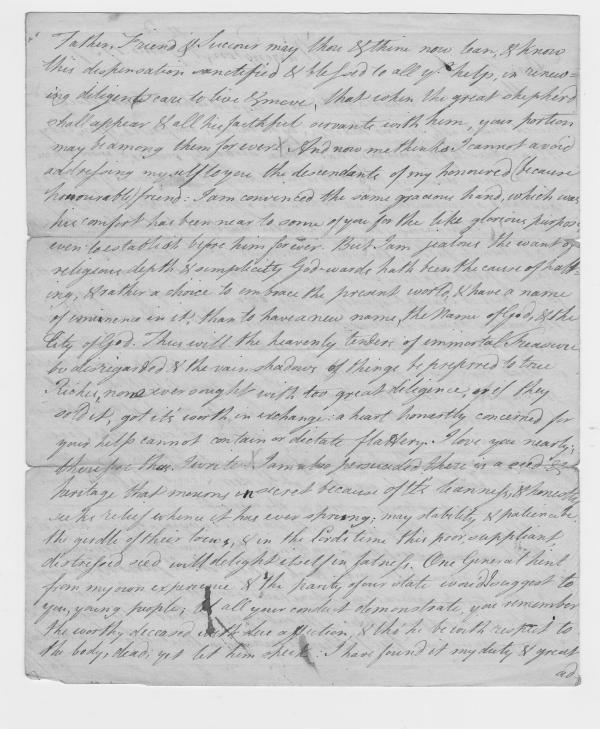 Father, Friend & Succour may thou & thine now lean, & know
this dispensation sanctified & blessed to all yr. help, in renew-
ing diligent care to live & move, that when the great shepherd
shall appear & all his faithful servants with him, your portion
may be among them for ever. And now methinks I cannot avoid
addressing myself to you the descendants of my honoured (because
honourable) friend: I am convinced the same gracious hand, which was
his comfort has been near to some of you for the like glorious purpose
even to establish before him for ever. But I am jealous the want of
religious depth & simplicity God-wards hath been the cause of halt-
ing, & rather a choice to embrace the present world, & have a name
of eminence in it, than to have a new name, the Name of God, & the
City of God. Thus will the heavenly tenders of immortal Treasure
be disregarded & the vain shadows of things be preferred to true
Riches, none ever sought with too great diligence, or if they
sold it, got it's worth in exchange: a heart honestly concerned for
your help cannot contain or dictate flattery. I love you nearly;
therefore thus I write. I am also persuaded there is a seed
heritage that mourns in secret because of its leanness, & honestly
seeks relief whence it has ever sprung; may stability & patience be
the girdle of their loins, & in the Lords time this poor suppliant
distressed seed will delight itself in fatness. One General hint
from my own experience & the parity of our state would suggest to
you, young people; all your conduct demonstrate, you remember
the worthy deceased with due affection, & tho' he be with respect to
the body, dead, yet let him speak. I have found it my duty & great
ad